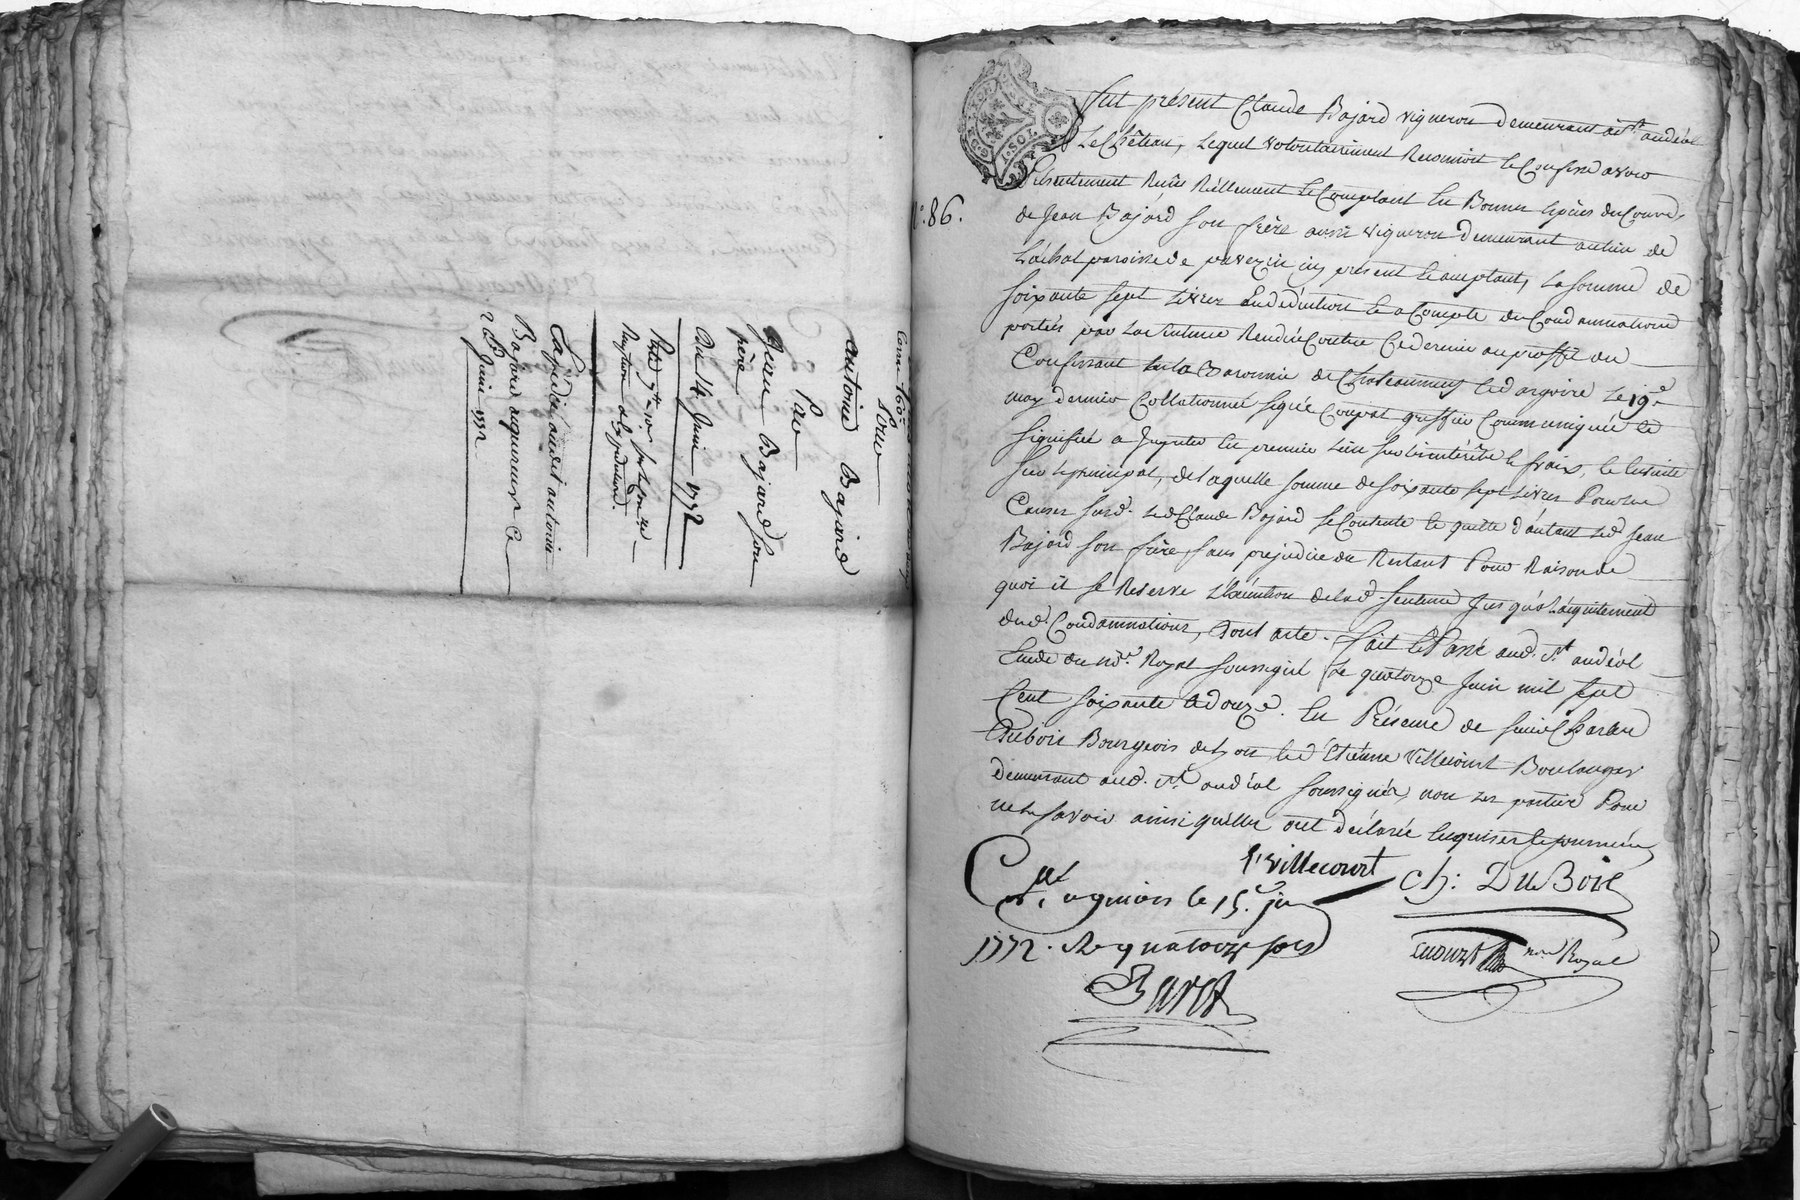 pour
antoine Bajard
Par
Jean Bajard son
père
Du 14. Juin 1772
Expedié audit antoine
Bajard acquereur Ce
26 Juin 1772
n.° 86.
Fut présent Claude Bajard vigneron demeurant à St. andéol
Le Château, Lequel volontairement Reconnoit & Confesse avoir
présentement Reçu Réellement & Comptant En Bonnes Espèces du Cours,
de Jean Bajard son frère aussi vigneron demeurant au lieu de
Lachal paroisse de pavezin icy present & acceptant, La somme de
soixante sept Livres En déduction & a Compte des Condamnations
portées par La Sentence Rendue Contre Ce dernier au proffit du
Confessant En la Baronnie de Chateauneuf & dargoire Le 19e.
may dernier Collationnée signée Coupat greffier Communiquée &
signifiée a Imputer En premier Lieu sur Les intérêts & fraix, & Ensuite
sur Le principal, de Laquelle somme de soixante sept Livres Pour les
Causes susd. Led Claude Bajard se Contente & quitte d'autant Led Jean
Bajard son frère, sans prejudice du Restant Pour Raison de
quoi il se Reserve L'Exécution de lad. sentence Jusqu'à L'acquitement
desd. Condamnations, dont acte. fait & Passé aud. St. andéol
Etude du no.re Royal soussigné Le quatorze Juin mil sept
Cent soixante & douze. En Présence de sieur Charles
Dubois Bourgeois de Lyon & d'Etienne Villecourt Boulanger
demeurant aud. St. andéol soussignés, non Les parties Pour
ne le savoir ainsi qu'elles ont déclaré Enquises & sommées
E. villecourt ch: DuBois
C.lé a givors le 15.e juin
1772. Rç quatorze sols
no.re Royal
Baret